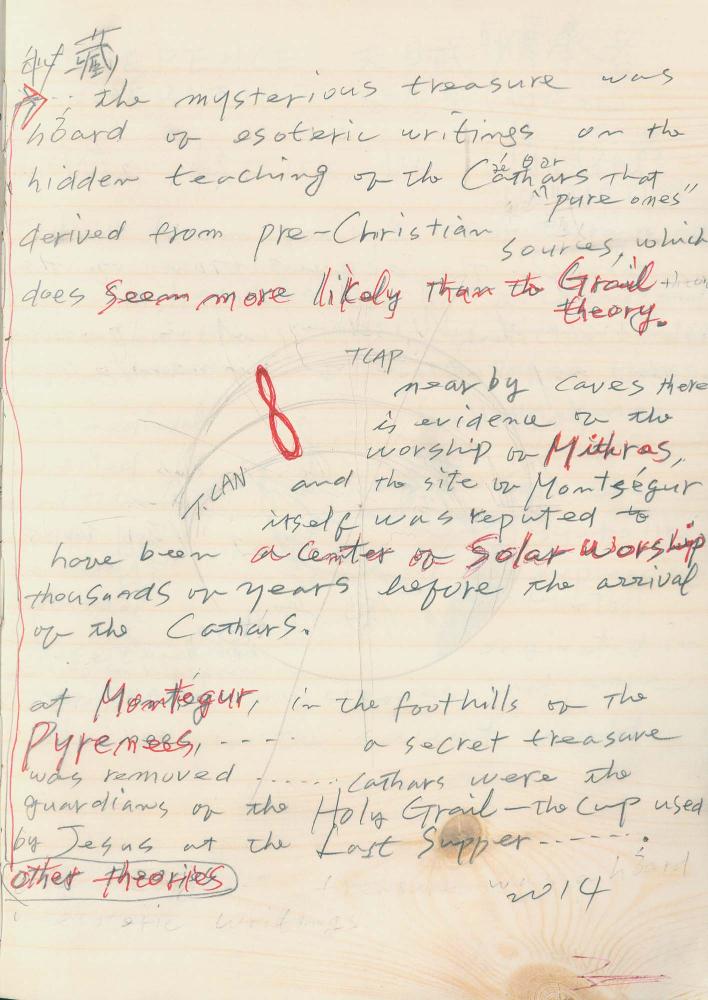 秘藏
... the mysterious treasure was
hoard of esoteric writings on the
hidden teaching of the Cathars that
"pure ones"
derived from pre-Christian sources, which
does seem more likely than the Grail
theory.
8
TCAP
near by caves there
is evidence of the
worship of Mithras,
T.CAN
and the site of Montségur
itself was reputed to
have been a center of Solar worship
thousands of years before the arrival
of the Cathars.
at Montégur, in the foothills of the
Pyrenees, ---- a secret treasure
was removed ...... Cathars were the
guardians of the Holy Grail—the cup used
by Jesus at the Last Supper ------.
other theories
2014
hoard
esoteric writings